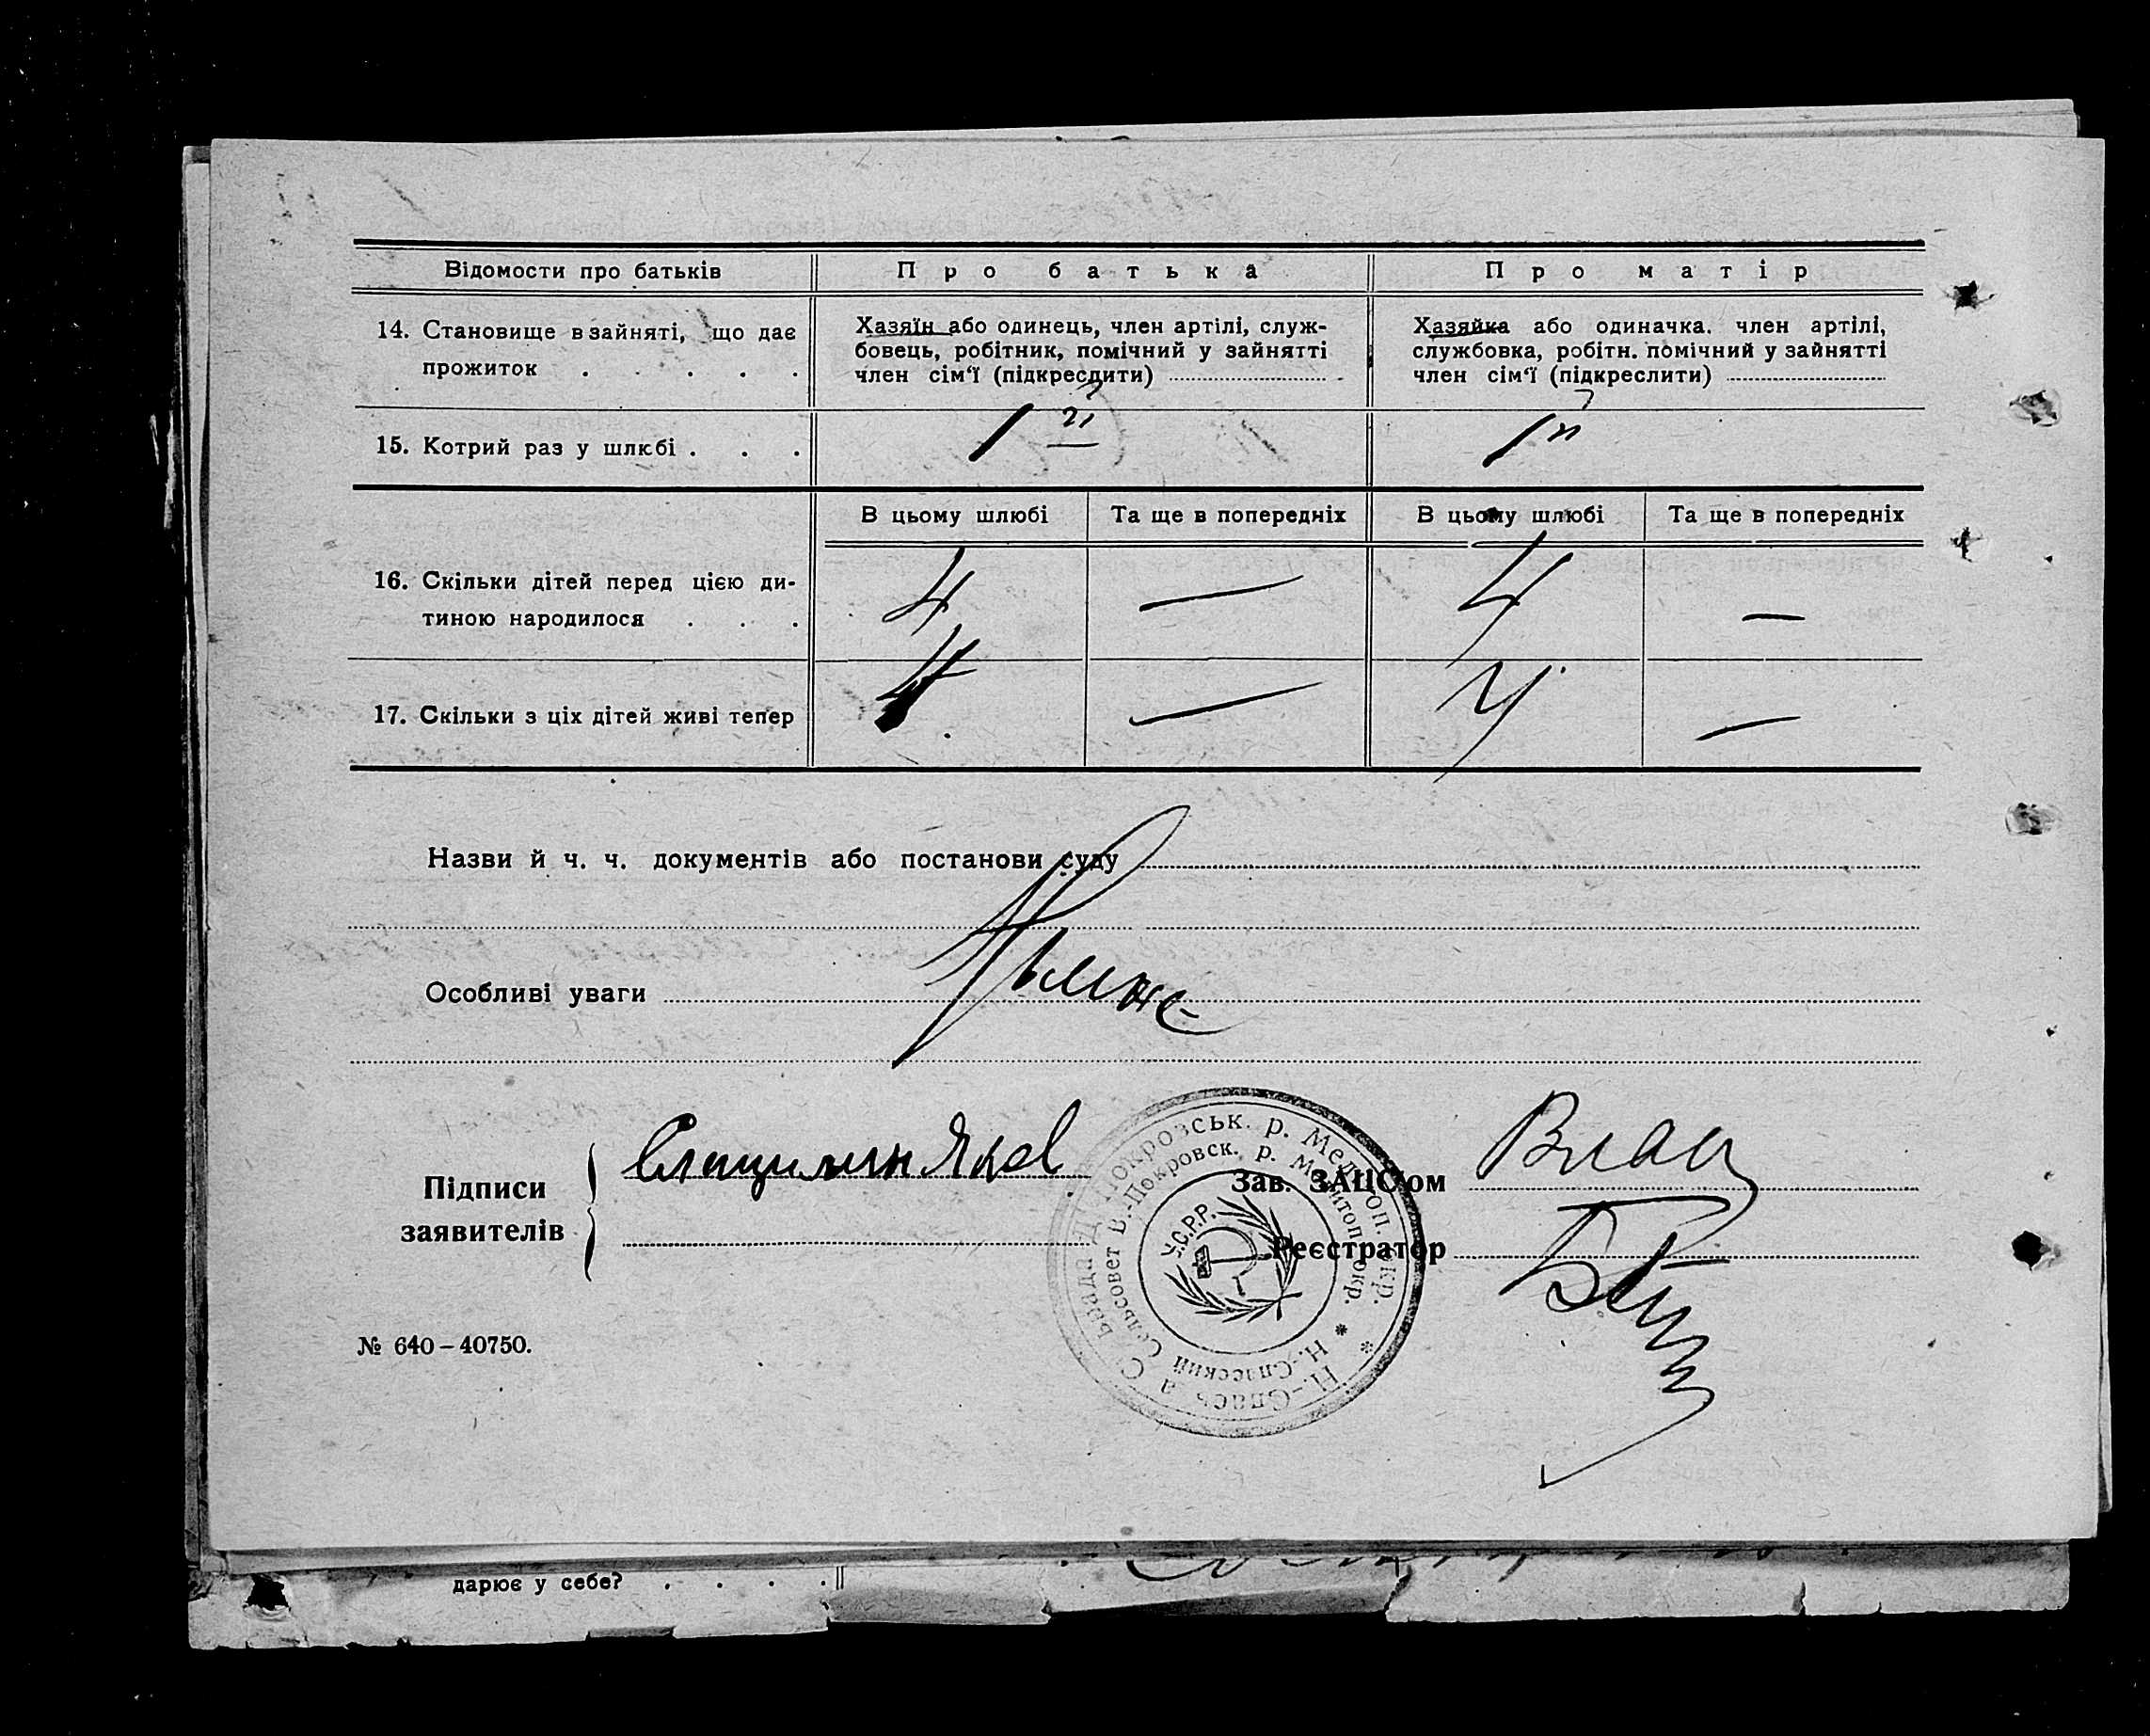 Відомости про батьків
Про батька
Про матір
14. Становище в зайняті, що дає
прожиток . . . . .
Хазяїн або одинець, член артілі, служ-
бовець, робітник, помічний у зайнятті
член сім'ї (підкреслити)
Хазяйка або одиначка. член артілі,
службовка, робітн. помічний у зайнятті
член сім'ї (підкреслити)
15. Котрий раз у шлюбі . . .
1й
1й
В цьому шлюбі
Та ще в попередніх
В цьому шлюбі
Та ще в попередніх
16. Скільки дітей перед цією ди-
тиною народилося . . .
4
—
4
—
17. Скільки з ціх дітей живі тепер
4
—
4
—
Назви й ч. ч. документів або постанови суду
Особливі уваги
Підписи
заявителів
Яков
Зав. ЗАЦС'ом
Реєстратор
Покровськ. р. Мел
В.-Покровск. р.
Сельсовет
Н.-Спасский
У.С.Р.Р.
№ 640–40750.
дарює у себе? . . . .